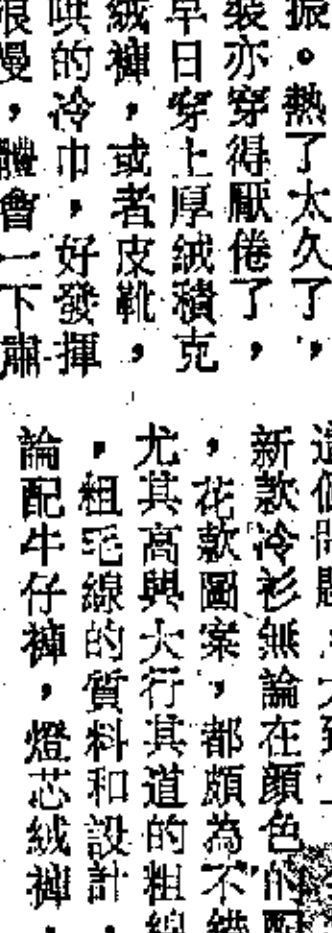 振。熱了太久了，
裝亦穿得厭倦了，
早日穿上厚絨積克
絨褲，或者皮靴，
哄的冷巾，好發揮
很慢，體會一下肅
新款冷衫無論在顏色的配
，花款圖案，都頗為不錯
尤其高興大行其道的粗線
，粗毛線的質料和設計，
論配牛仔褲，燈芯絨褲，